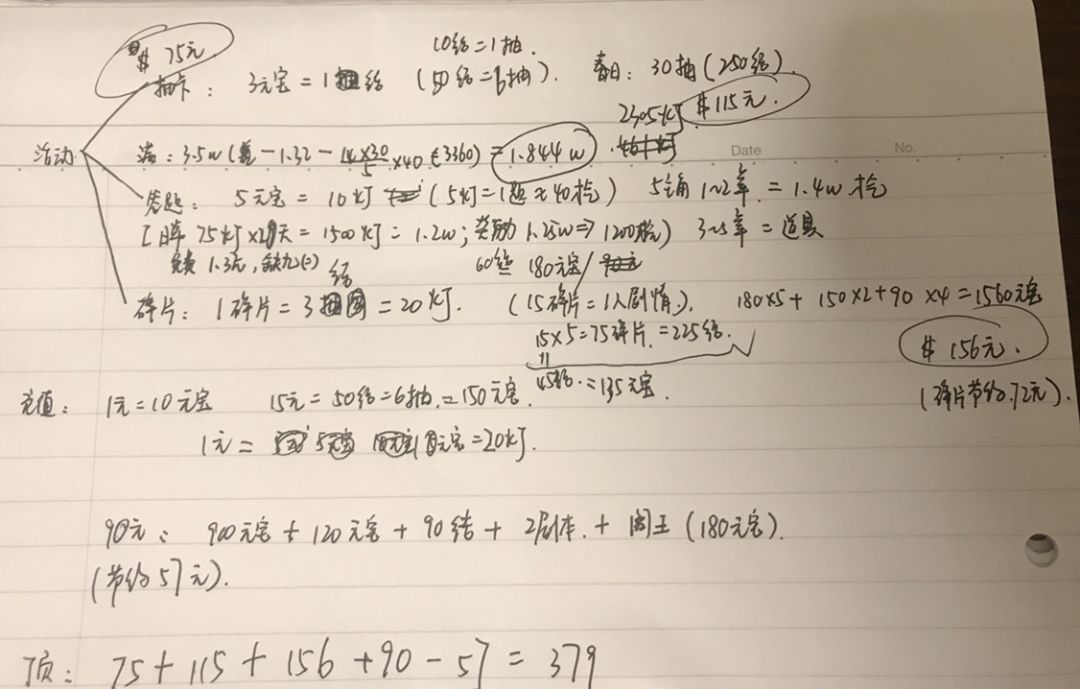 $ 75元
10结=1抽.
抽卡: 3元宝=1结 (50结=6抽). 春日: 30抽(250结)
2305灯 $115元.
活动
满: 3.5w ( -1.32 - 14×30/5 ×40 (3360) = 1.844w)
Date No.
答题: 5元宝 = 10灯 (5灯=1题≈40抢) 5主角 1~2章 = 1.4w 抢
[ 75灯×2 天 = 1500灯 = 1.2w; 奖励 1.25w => 1200 ) 3~5章 = 道具
免费 1.3w,
60结 180元宝/
碎片: 1碎片=3结=20灯. (15碎片=1人剧情). 180×5 + 150×2+90 ×4=1560元宝
15×5=75碎片.=225结.
$ 156元.
45结.=135元宝.
(碎片节约.72元).
充值: 1元=10元宝 15元=50结=6抽.=150元宝.
1元= 元宝=20灯.
90元: 900元宝 + 120元宝 + 90结 + 2剧本. + 阎王 (180元宝).
(节约57元).
顶: 75+115+156+90-57=379